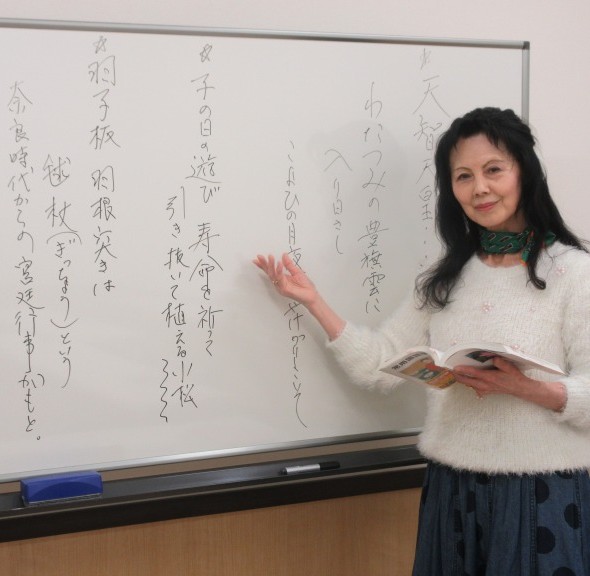 ☆天智天皇…
わたつみの豊旗雲に
入り日さし
こよひの月夜
☆子の日の遊び 寿命を祈って
引き抜いて植える小松
☆羽子板 羽根突きは
毬杖(ぎっちょう)という
奈良時代からの宮廷行事がもと。